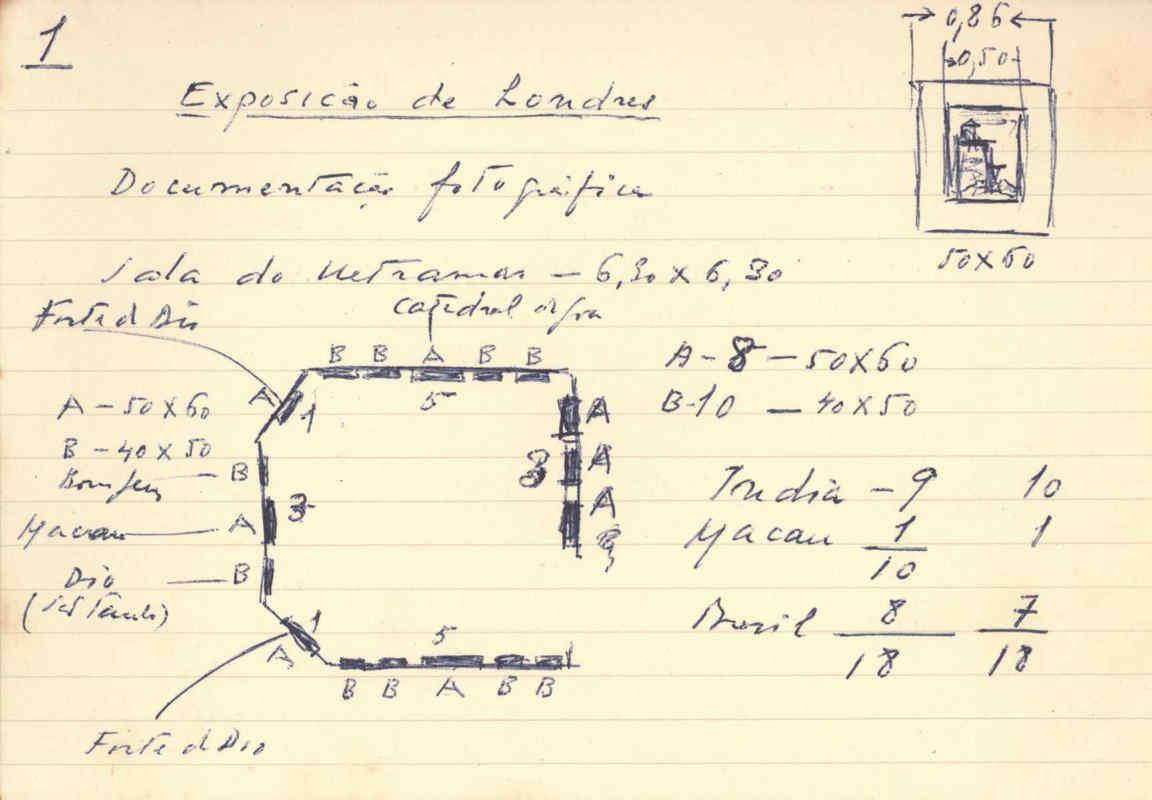 1
0,86
0,50
Exposição de Londres
Documentação fotográfica
50x60
Sala do Ultramar - 6,30 x 6,30
Forte d Dio
catedral
B B A B B
5
A - 8 - 50x60
B-10 - 40x50
A - 50x60
A 1
B - 40x50
Bom Jesus B
3
A
A
A
3
Macau A
Dio B
India - 9 10
Macau 1 1
10
Brasil 8 7
18 18
1
A
5
B B A B B
Forte d Dio